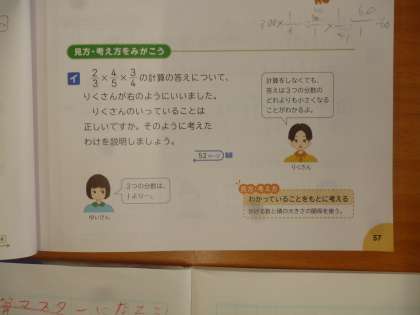 見方・考え方をみがこう
イ 2/3 × 4/5 × 3/4 の計算の答えについて、
りくさんが右のようにいいました。
りくさんのいっていることは
正しいですか。そのように考えた
わけを説明しましょう。
52ページ
計算をしなくても、
答えは3つの分数の
どれよりも小さくなる
ことがわかるよ。
りくさん
3つの分数は、
1より…。
ゆいさん
見方・考え方
わかっていることをもとに考える
かける数と積の大きさの関係を使う。
57